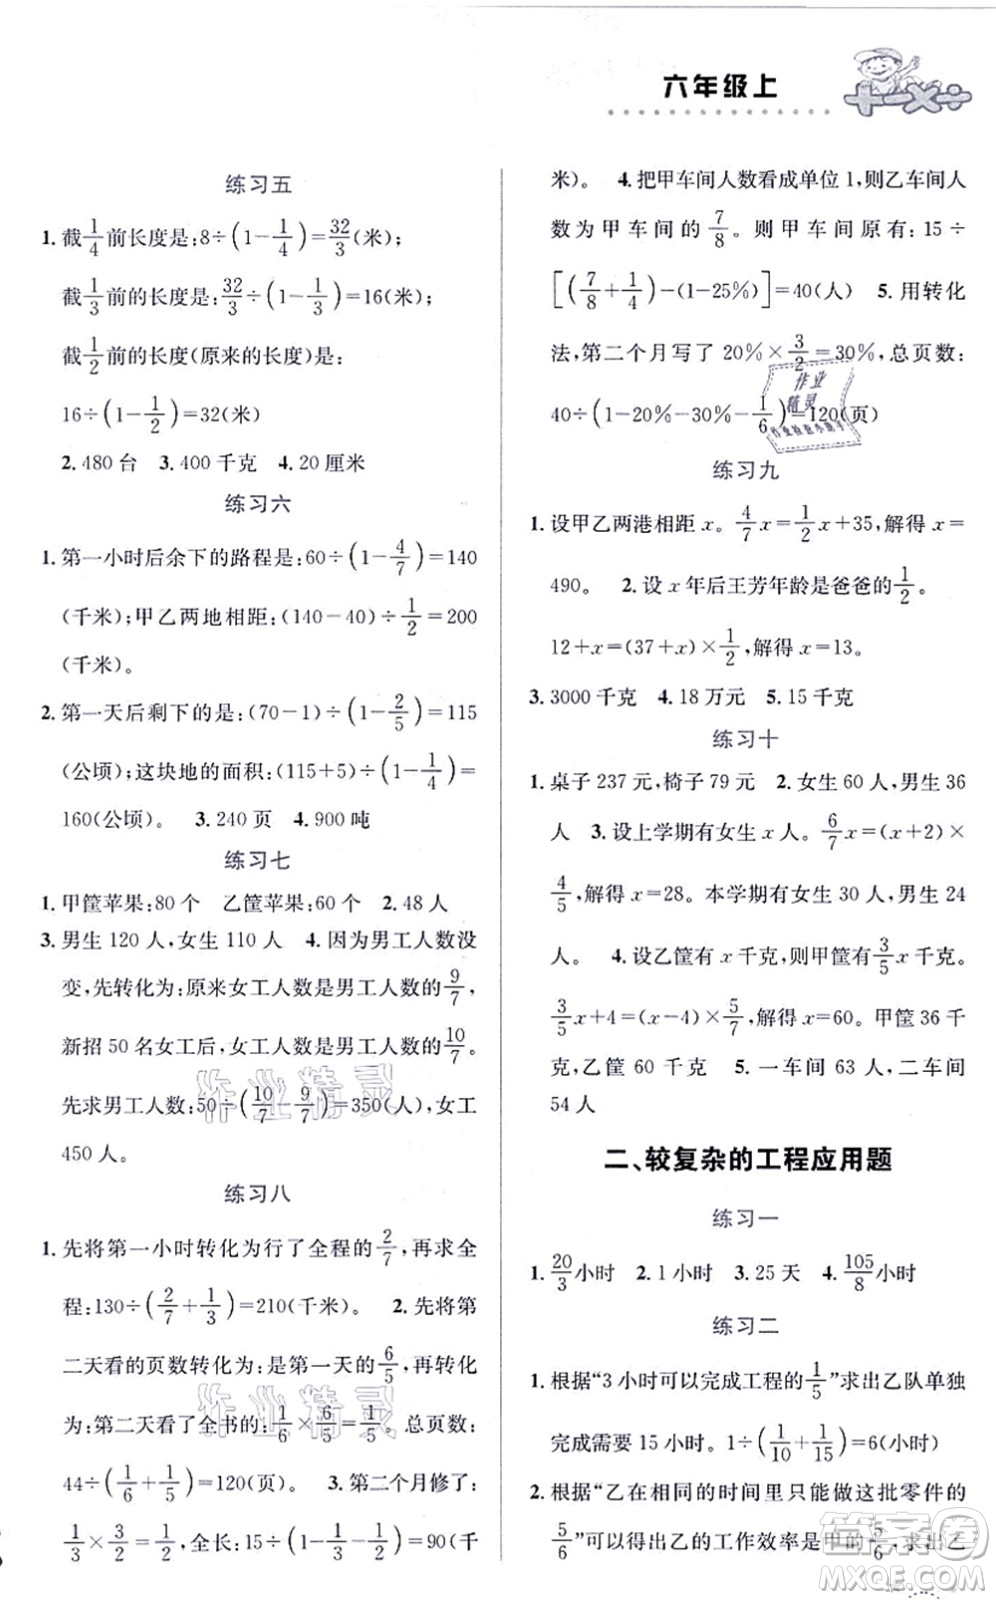 六年级上
练习五
1. 截1/4前长度是:8÷(1-1/4)=32/3(米);
截1/3前的长度是:32/3÷(1-1/3)=16(米);
截1/2前的长度(原来的长度)是:
16÷(1-1/2)=32(米)
2. 480 台 3. 400 千克 4. 20 厘米
练习六
1. 第一小时后余下的路程是:60÷(1-4/7)=140
(千米);甲乙两地相距:(140-40)÷1/2=200
(千米)。
2. 第一天后剩下的是:(70-1)÷(1-2/5)=115
(公顷);这块地的面积:(115+5)÷(1-1/4)=
160(公顷)。 3. 240 页 4. 900 吨
练习七
1. 甲筐苹果:80 个 乙筐苹果:60 个 2. 48 人
3. 男生 120 人,女生 110 人 4. 因为男工人数没
变,先转化为:原来女工人数是男工人数的9/7,
新招 50 名女工后,女工人数是男工人数的10/7。
先求男工人数:50÷(10/7-9/7)=350(人),女工
450 人。
练习八
1. 先将第一小时转化为行了全程的2/7,再求全
程:130÷(2/7+1/3)=210(千米)。 2. 先将第
二天看的页数转化为:是第一天的6/5,再转化
为:第二天看了全书的:1/6×6/5=1/5。总页数:
44÷(1/6+1/5)=120(页)。 3. 第二个月修了:
1/3×3/2=1/2,全长:15÷(1-1/3-1/2)=90(千
米)。 4. 把甲车间人数看成单位 1,则乙车间人
数为甲车间的7/8。则甲车间原有:15÷
[(7/8+1/4)-(1-25%)]=40(人) 5. 用转化
法,第二个月写了 20%×3/2=30%,总页数:
40÷(1-20%-30%-1/6)=120(页)
练习九
1. 设甲乙两港相距 x。4/7x=1/2x+35,解得 x=
490。 2. 设 x 年后王芳年龄是爸爸的1/2。
12+x=(37+x)×1/2,解得 x=13。
3. 3000 千克 4. 18 万元 5. 15 千克
练习十
1. 桌子 237 元,椅子 79 元 2. 女生 60 人,男生 36
人 3. 设上学期有女生 x 人。6/7x=(x+2)×
4/5,解得 x=28。本学期有女生 30 人,男生 24
人。 4. 设乙筐有 x 千克,则甲筐有3/5x千克。
3/5x+4=(x-4)×5/7,解得 x=60。甲筐 36 千
克,乙筐 60 千克 5. 一车间 63 人,二车间
54 人
二、较复杂的工程应用题
练习一
1. 20/3小时 2. 1 小时 3. 25 天 4. 105/8小时
练习二
1. 根据“3 小时可以完成工程的1/5”求出乙队单独
完成需要 15 小时。1÷(1/10+1/15)=6(小时)
2. 根据“乙在相同的时间里只能做这批零件的
5/6”可以得出乙的工作效率是甲的5/6,求出乙
作业精灵
作业精灵
作业精灵
答案圈
MXQE.COM